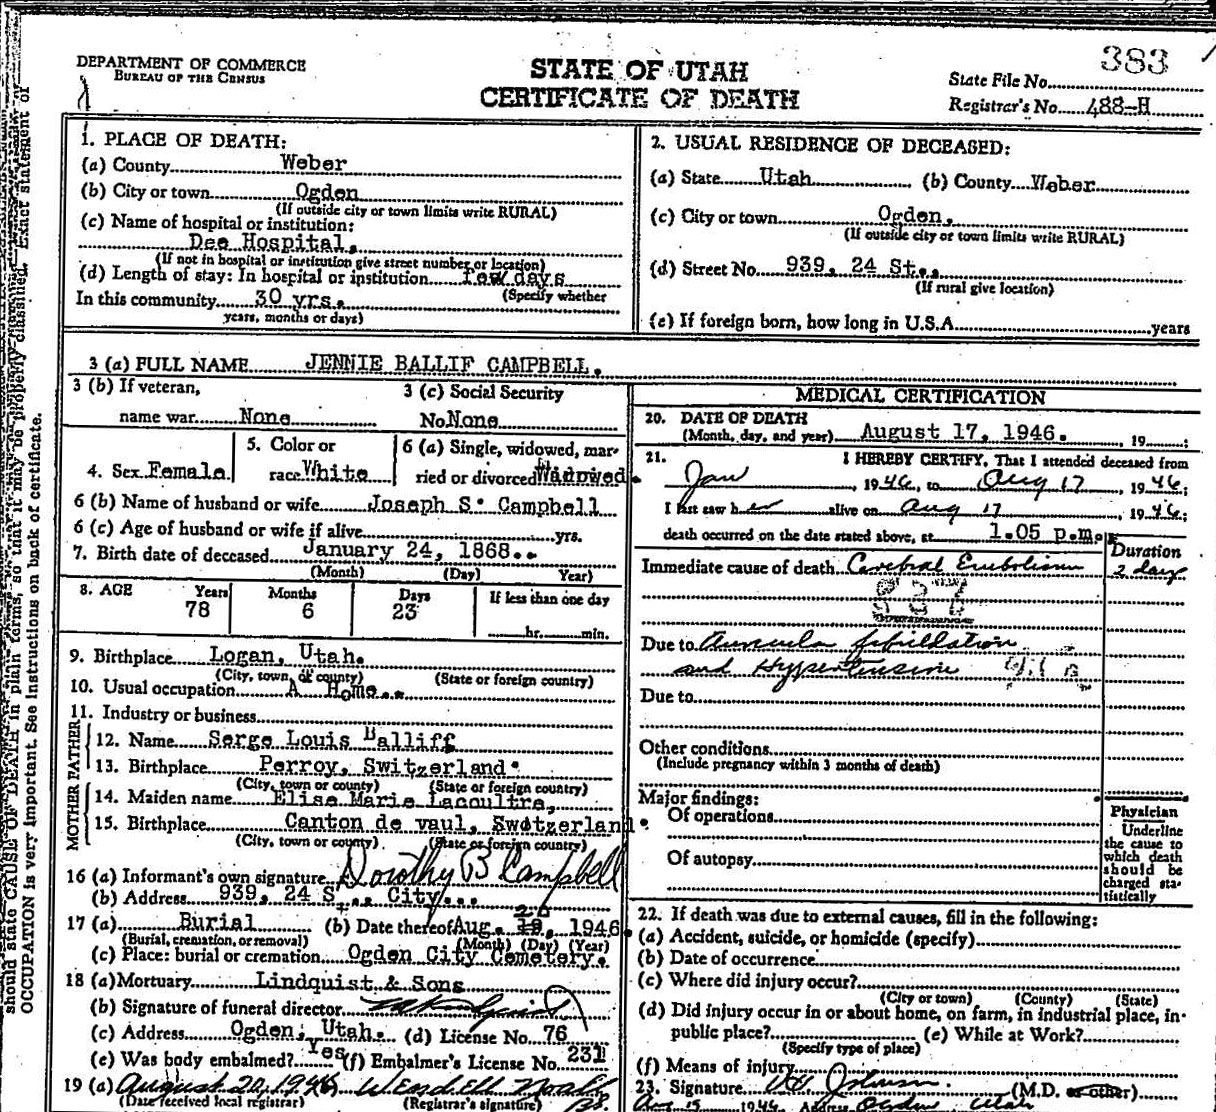 383
DEPARTMENT OF COMMERCE
BUREAU OF THE CENSUS
STATE OF UTAH
CERTIFICATE OF DEATH
State File No.
Registrar's No. 488-H
1. PLACE OF DEATH:
(a) County Weber
(b) City or town Ogden
(If outside city or town limits write RURAL)
(c) Name of hospital or institution:
Dee Hospital,
(If not in hospital or institution give street number or location)
(d) Length of stay: In hospital or institution few days
(Specify whether
In this community 30 yrs.
years, months or days)
2. USUAL RESIDENCE OF DECEASED:
(a) State Utah (b) County Weber
(c) City or town Ogden,
(If outside city or town limits write RURAL)
(d) Street No. 939, 24 St.,
(If rural give location)
(e) If foreign born, how long in U.S.A. years
3 (a) FULL NAME JENNIE BALLIF CAMPBELL.
3 (b) If veteran,
name war None
3 (c) Social Security
No None
4. Sex Female
5. Color or
race White
6 (a) Single, widowed, mar-
ried or divorced Widowed.
6 (b) Name of husband or wife Joseph S. Campbell
6 (c) Age of husband or wife if alive yrs.
7. Birth date of deceased January 24, 1868..
(Month) (Day) Year)
8. AGE Years Months Days If less than one day
78 6 23 hr. min.
9. Birthplace Logan, Utah.
(City, town, or county) (State or foreign country)
10. Usual occupation A Home..
11. Industry or business
FATHER
12. Name Serge Louis Balliff
13. Birthplace Perroy, Switzerland.
(City, town or county) (State or foreign country)
MOTHER
14. Maiden name Elise Marie Lacoultre,
15. Birthplace Canton de vaul, Switzerland.
(City, town or county) (State or foreign country)
16 (a) Informant's own signature Dorothy B Campbell
(b) Address 939, 24 S., City...
17 (a) Burial (b) Date thereof Aug. 20, 1946.
(Burial, cremation, or removal) (Month) (Day) (Year)
(c) Place: burial or cremation Ogden City Cemetery.
18 (a) Mortuary Lindquist & Sons
(b) Signature of funeral director
(c) Address Ogden, Utah. (d) License No. 76
(e) Was body embalmed? Yes (f) Embalmer's License No. 231
19 (a) August 20, 1946 Wendell Noall
(Date received local registrar) (Registrar's signature)
MEDICAL CERTIFICATION
20. DATE OF DEATH
(Month, day, and year) August 17, 1946. 19 ;
21. I HEREBY CERTIFY, That I attended deceased from
Jan, 1946, to Aug 17, 1946;
I last saw her alive on Aug 17, 1946;
death occurred on the date stated above, at 1.05 p.m.
Duration
Immediate cause of death Cerebral Embolism 2 days
Due to Auricular fibrillation
and Hypertension
Due to
Other conditions
(Include pregnancy within 3 months of death)
Major findings:
Of operations
Of autopsy
Physician
Underline
the cause to
which death
should be
charged sta-
tistically
22. If death was due to external causes, fill in the following:
(a) Accident, suicide, or homicide (specify)
(b) Date of occurrence
(c) Where did injury occur?
(City or town) (County) (State)
(d) Did injury occur in or about home, on farm, in industrial place, in
public place? (e) While at Work?
(Specify type of place)
(f) Means of injury
23. Signature (M.D. or other)
1946 Address Ogden, Utah
should state CAUSE OF DEATH in plain terms, so that it may be properly classified. Exact statement of
OCCUPATION is very important. See instructions on back of certificate.